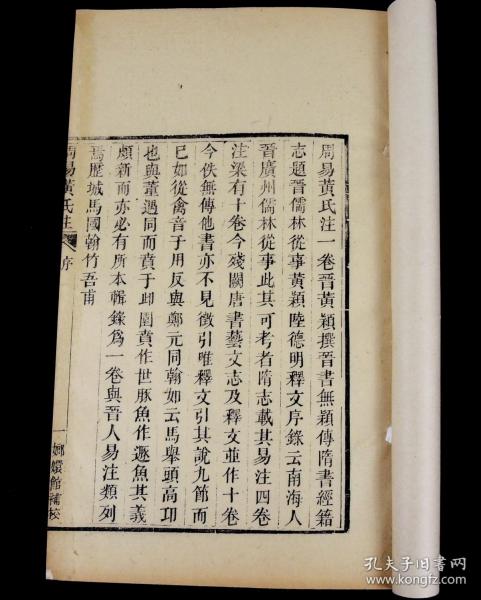 周易黃氏注一卷晉黃穎撰晉書無穎傳隋書經籍
志題晉儒林從事黃穎陸德明釋文序錄云南海人
晉廣州儒林從事此其可考者隋志載其易注四卷
注梁有十卷今殘闕唐書藝文志及釋文並作十卷
今佚無傳他書亦不見徵引唯釋文引其說九節而
已如從禽音子用反與鄭元同翰如云馬舉頭高卬
也與董遇同而賁于邱園賁作世豚魚作遯魚其義
頗新而亦必有所本輯錄為一卷與晉人易注類列
焉歷城馬國翰竹吾甫
周易黃氏注 序
嫏嬛館補校
孔夫子旧书网
www.kongfz.com